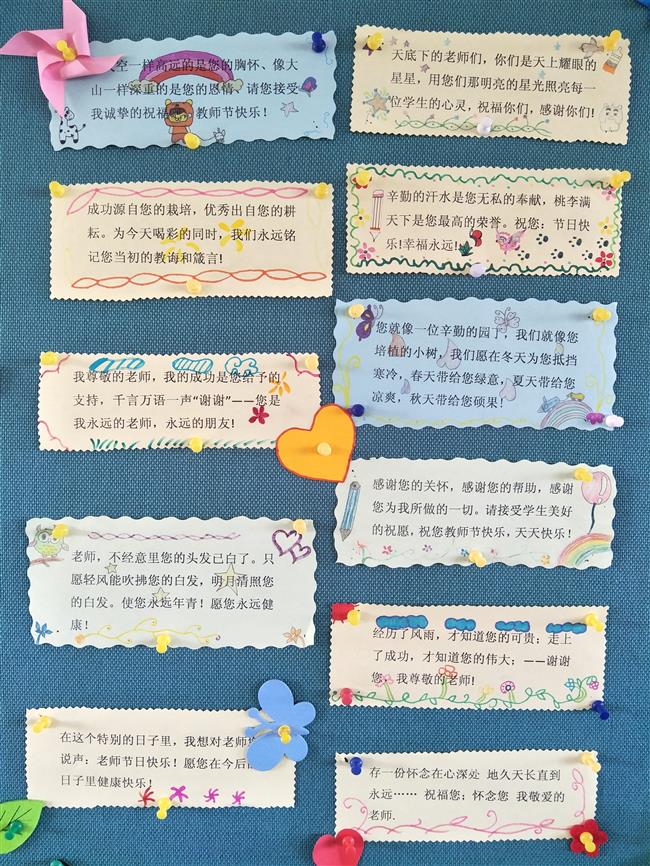 天空一样高远的是您的胸怀、像大
山一样深重的是您的恩情,请您接受
我诚挚的祝福 教师节快乐!
天底下的老师们,你们是天上耀眼的
星星,用您们那明亮的星光照亮每一
位学生的心灵,祝福你们,感谢你们!
成功源自您的栽培,优秀出自您的耕
耘。为今天喝彩的同时,我们永远铭
记您当初的教诲和箴言!
辛勤的汗水是您无私的奉献,桃李满
天下是您最高的荣誉。祝您:节日快
乐!幸福永远!
我尊敬的老师,我的成功是您给予的
支持,千言万语一声“谢谢”——您是
我永远的老师,永远的朋友!
您就像一位辛勤的园丁,我们就像您
培植的小树,我们愿在冬天为您抵挡
寒冷,春天带给您绿意,夏天带给您
凉爽,秋天带给您硕果!
感谢您的关怀,感谢您的帮助,感谢
您为我所做的一切。请接受学生美好
的祝愿,祝您教师节快乐,天天快乐!
老师,不经意里您的头发已白了。只
愿轻风能吹拂您的白发,明月清照您
的白发。使您永远年青!愿您永远健
康!
经历了风雨,才知道您的可贵;走上
了成功,才知道您的伟大;——谢谢
您,我尊敬的老师!
在这个特别的日子里,我想对老师
说声:老师节日快乐!愿您在今后
日子里健康快乐!
存一份怀念在心深处 地久天长直到
永远…… 祝福您;怀念您 我敬爱的
老师.